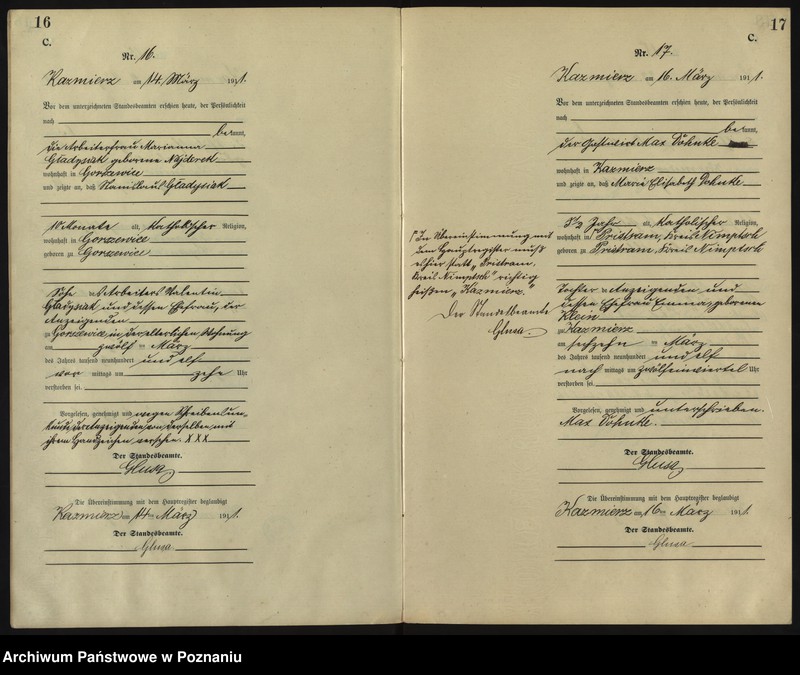 16
C.
Nr. 16.
Kazmierz am 14. März 1911.
Vor dem unterzeichneten Standesbeamten erschien heute, der Persönlichkeit
nach
bekannt,
die Arbeiterfrau Marianna
Gladysiak geborene Najderek
wohnhaft in Gorszewice
und zeigte an, daß Stanislaus Gladysiak
10 Monate alt, katholischer Religion,
wohnhaft in Gorszewice
geboren zu Gorszewice
Sohn des Arbeiters Valentin
Gladysiak und dessen Ehefrau, der
Anzeigenden
zu Gorszewice in der elterlichen Wohnung
am zwölften März
des Jahres tausend neunhundert und elf
vor mittags um zehn Uhr
verstorben sei.
Vorgelesen, genehmigt und wegen Schreibensun-
kunde der Anzeigenden von derselben mit
ihrem Handzeichen versehen. XXX
Der Standesbeamte.
Glusa
Die Übereinstimmung mit dem Hauptregister beglaubigt
Kazmierz am 14ten März 1911.
Der Standesbeamte.
Glusa
17
C.
Nr. 17.
Kazmierz am 16. März 1911.
Vor dem unterzeichneten Standesbeamten erschien heute, der Persönlichkeit
nach
bekannt,
der Gastwirt Max Dohnke
wohnhaft in Kazmierz
und zeigte an, daß Marie Elisabeth Dohnke
5½ Jahr alt, katholischer Religion,
wohnhaft in Pristram, Kreis Nimptsch
geboren zu Pristram, Kreis Nimptsch
Tochter des Anzeigenden und
dessen Ehefrau Emma, geborenen
Klein
zu Kazmierz
am sechzehn ten März
des Jahres tausend neunhundert und elf
nach mittags um zwölfeinviertel Uhr
verstorben sei.
Vorgelesen, genehmigt und unterschrieben.
Max Dohnke.
Der Standesbeamte.
Glusa
Die Übereinstimmung mit dem Hauptregister beglaubigt
Kazmierz am 16ten März 1911.
Der Standesbeamte.
Glusa
In Übereinstimmung mit
dem Hauptregister muß
es hier statt „Pristram,
Kreis Nimptsch" richtig
heißen „Kazmierz."
Der Standesbeamte
Glusa.
Archiwum Państwowe w Poznaniu